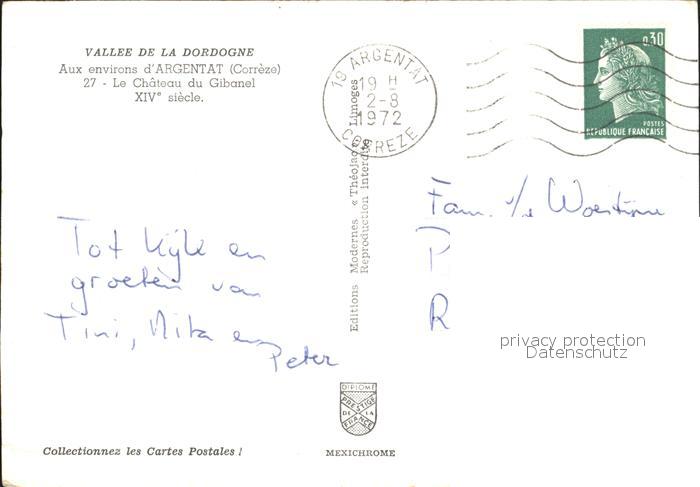 VALLEE DE LA DORDOGNE
Aux environs d'ARGENTAT (Corrèze)
27 - Le Château du Gibanel
XIVe siècle.
19 ARGENTAT
19 H
2-8
1972
CORREZE
0,30
POSTES
RÉPUBLIQUE FRANÇAISE
Editions Modernes « Théojac » Limoges
Reproduction interdite
Tot kijk en
groeten van
Tini, Nita en
Peter
Fam.
P
R
privacy protection
Datenschutz
DIPLOME
PRESTIGE
DE LA
FRANCE
Collectionnez les Cartes Postales !
MEXICHROME